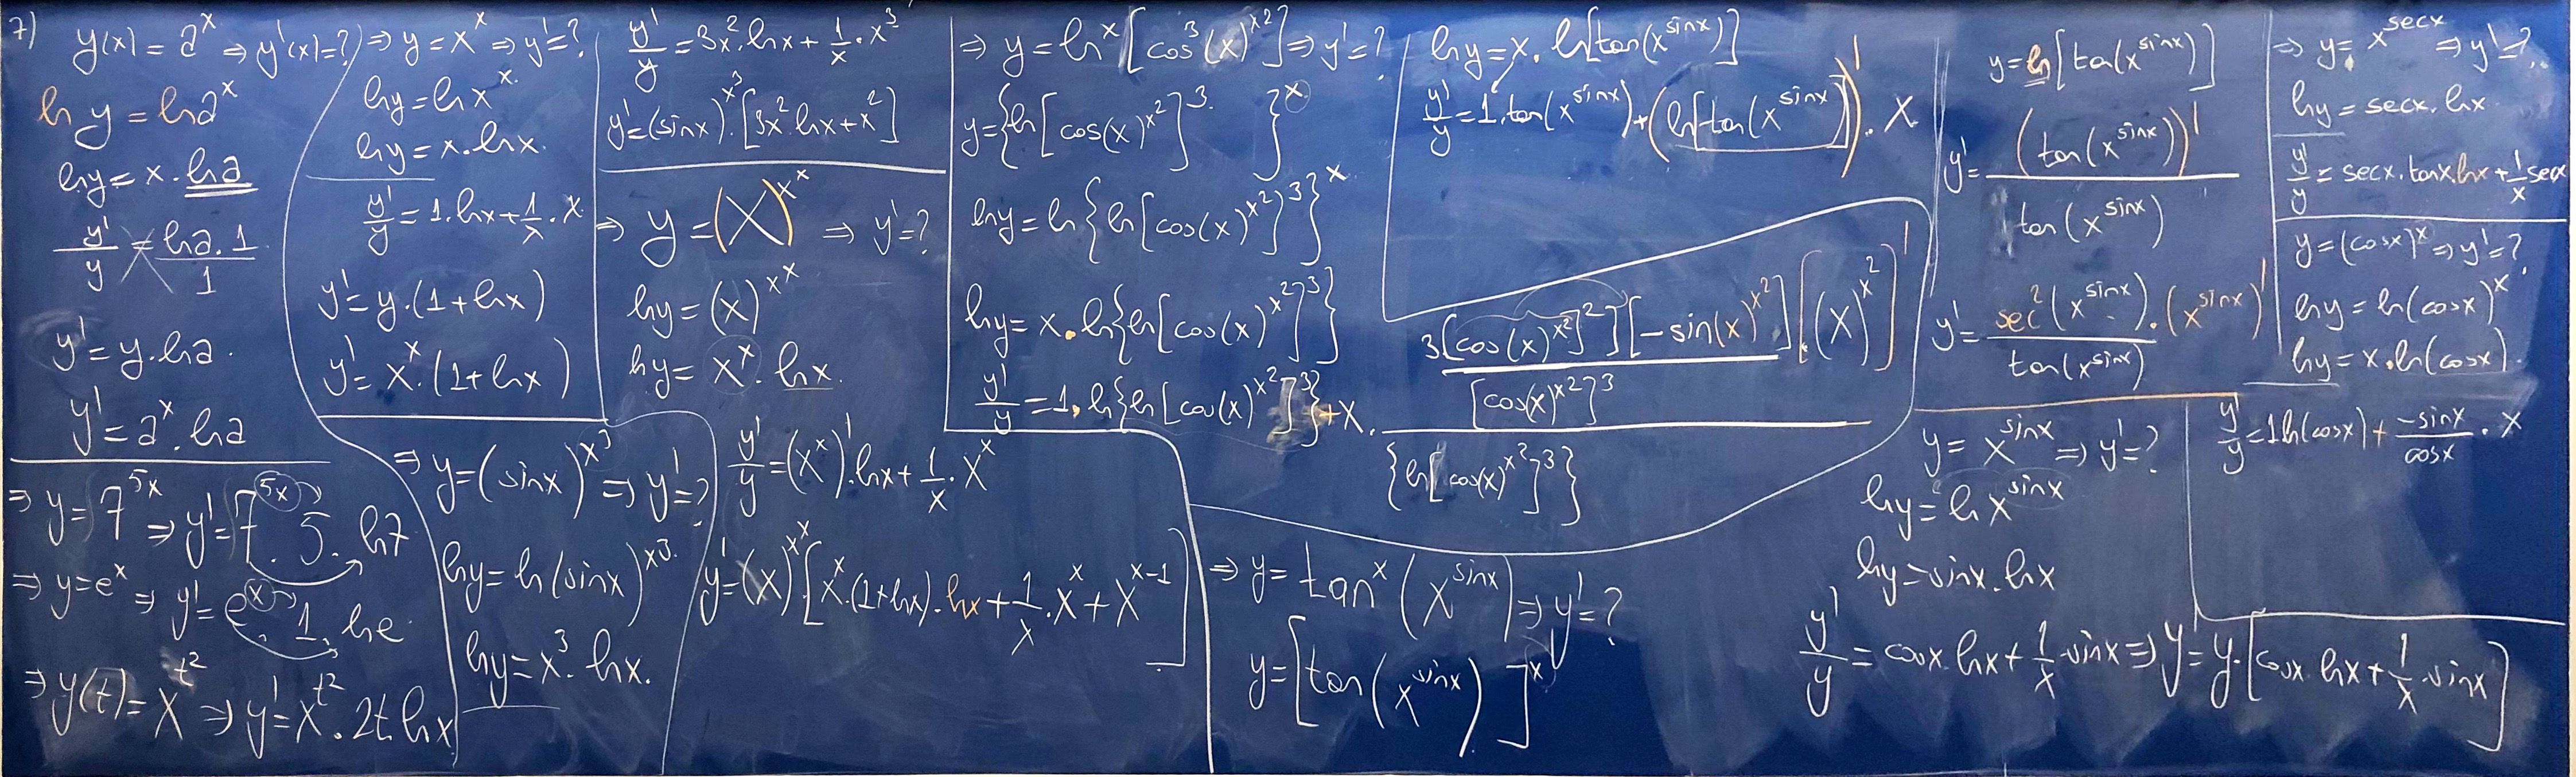 7) y(x) = a^x ⇒ y'(x)=?
ln y = ln a^x
ln y = x . ln a
y'/y = ln a . 1 / 1
y' = y . ln a .
y' = a^x . ln a
⇒ y = 7^5x ⇒ y' = 7^5x . 5 . ln 7
⇒ y = e^x ⇒ y' = e^x . 1 . ln e
⇒ y(t) = x^t^2 ⇒ y' = x^t^2 . 2t . ln x
⇒ y = x^x ⇒ y' = ?
ln y = ln x^x .
ln y = x . ln x .
y'/y = 1 . ln x + 1/x . x
y' = y . (1 + ln x)
y' = x^x . (1 + ln x)
⇒ y = (sinx)^x^3 ⇒ y' = ?
ln y = ln (sinx)^x^3 .
ln y = x^3 . ln x .
y'/y = 3x^2 . ln x + 1/x . x^3
y' = (sinx)^x^3 . [3x^2 . ln x + x^2]
⇒ y = (x)^x^x ⇒ y' = ?
ln y = (x)^x^x
ln y = x^x . ln x .
y'/y = (x^x)' . ln x + 1/x . x^x
y' = (x)^x^x . [x^x . (1+ln x) . ln x + 1/x . x^x + x^x-1]
⇒ y = ln^x [cos^3 (x)^x^2] ⇒ y' = ?
y = {ln [cos(x)^x^2]^3 . }^x
ln y = ln {ln [cos(x)^x^2]^3}^x
ln y = x . ln {ln [cos(x)^x^2]^3}
y'/y = 1 . ln {ln [cos(x)^x^2]^3} + x . 3[cos(x)^x^2]^2] [-sin(x)^x^2] . [(x)^x^2]' / [cos(x)^x^2]^3 / {ln [cos(x)^x^2]^3}
⇒ y = tan^x (x^sinx) ⇒ y' = ?
y = [tan (x^sinx)]^x
ln y = x . ln [tan(x^sinx)]
y'/y = 1 . tan(x^sinx) + (ln [tan(x^sinx)])' . x
y = ln [tan(x^sinx)]
y' = (tan(x^sinx))' / tan (x^sinx)
y' = sec^2 (x^sinx) . (x^sinx)' / tan(x^sinx)
y = x^sinx ⇒ y' = ?
ln y = ln x^sinx
ln y = sinx . ln x
y'/y = cosx . ln x + 1/x . sinx ⇒ y' = y . [cosx . ln x + 1/x . sinx]
⇒ y = x^secx ⇒ y' = ?
ln y = secx . ln x .
y'/y = secx . tanx . ln x + 1/x secx
y = (cosx)^x ⇒ y' = ?
ln y = ln (cosx)^x
ln y = x . ln (cosx) .
y'/y = 1 ln (cosx) + -sinx/cosx . x